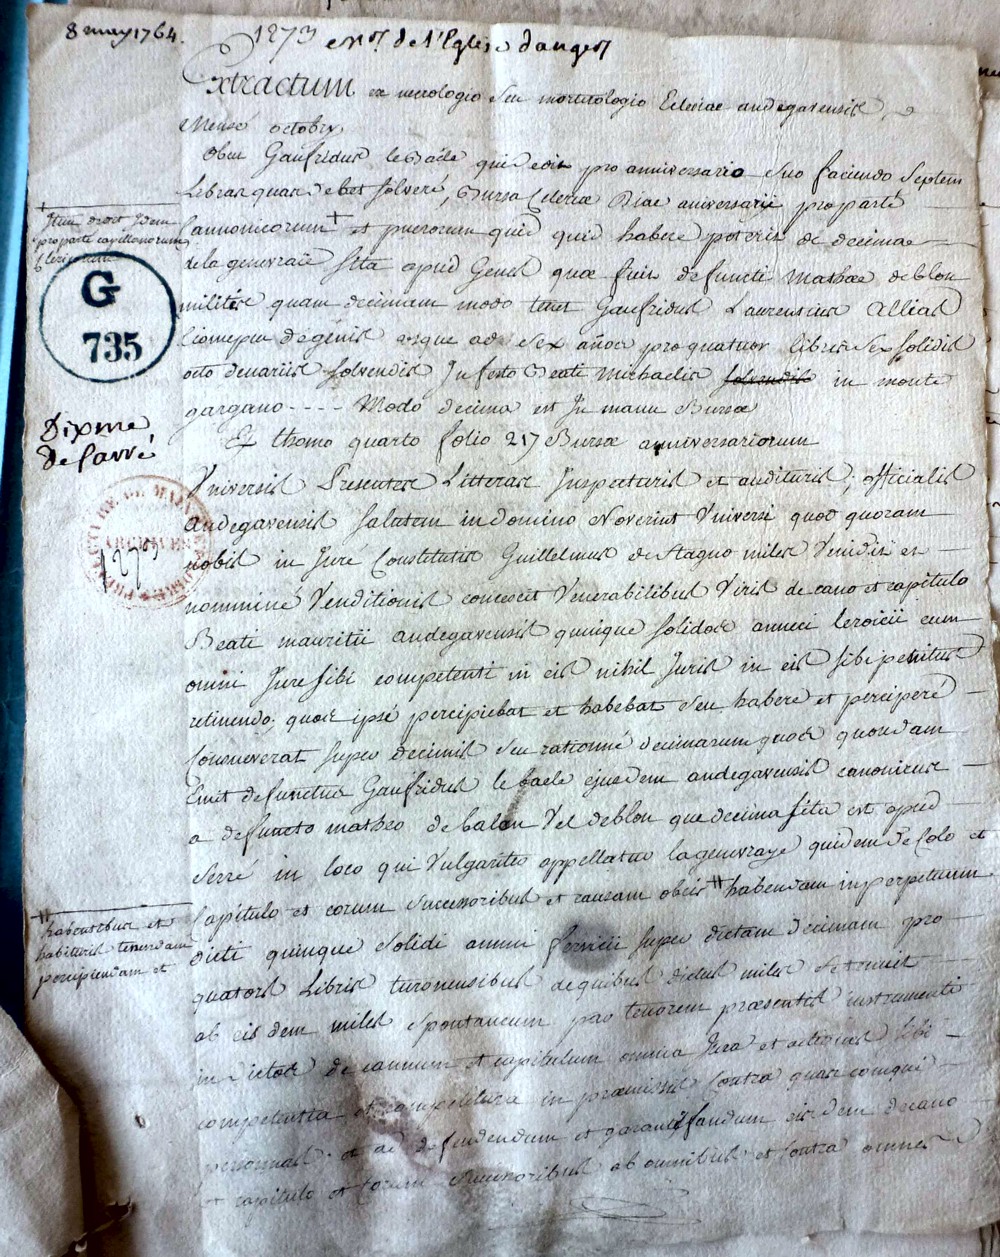 8 may 1764.
1273 ext de l'Eglise dangers
Extractum ex necrologio seu mortilogio Ecleriae andegavensis
Mense octobris
Obiit Gaufridus le Baële qui dedit pro anniversario suo faciendo Septem
Libras quas debet solveré, Bursa Clericae Bsae aniversarii pro parte
Cannonicorum + et puerorum quid quid habere poterit de decimae
de la genevraie sita apud Genes quae fuit defuncti mathae de blou
militis quam decimam modo tenet Gaufridus Laurensius Allias
de genis usque ad sex años pro quatuor libris sex solidis
octo denariis solvendis In festo Beati Michaelis solvendis in monte
gargano ---- Modo decima est In manu Bursae
Ex thomo quarto folio 217 Bursae anniversariorum
Universis Presentes Litteras Inspecturis et audituris, officialis
andegavensis salutem in domino Noverint Universi quot quoram
nobis in Juré Constitutis Guillelmus de Stagno miles Vendidit et
nomminé Venditionis concescit Venerabilibus Viris decano et capitulo
Beati mauritii andegavensis quinque solidos annui cum
omni Jure sibi competenti in eis nihil Juris in eis sibi penitus
retinendo, quos ipsé percipiebat et habebat seu haberé et perciperé
Consueverat super decimis seu rationné decimarum quos quondam
Emit defunctus Gaufridus le baele ejusdem andegavensis canonicus
a defuncto matheo de balou Vel deblou que decima sita est apud
Serré in loco qui Vulgariter appellatur lagenevraye quidem de Colo et
Capitulo et eorum Successoribus et causam obeis # habendam inperpetuum
dicti quinque solidi annui super dictam decimam pro
quators Libris turonensibus dequibus dictus miles se tenuit
ab eis dem miles spontaneum per tenorem praesentis instrumenti
in dictos decannum et capitulum omnia Jura et actiones sibi
competentia et competitura in praemissis Contra quas cumque
personnas. et ad defendendum et garantisandum eisdem decano
et capitulo et Eorum Successoribus ab omnibus et Contra omnes
Item dedit Idem
pro parte capellanorum
G
735
Dixme
de sarré
PREFECTURE DE MAINE
ARCHIVES
1273
# habentibus et
habituris tenendam
percipiendam et